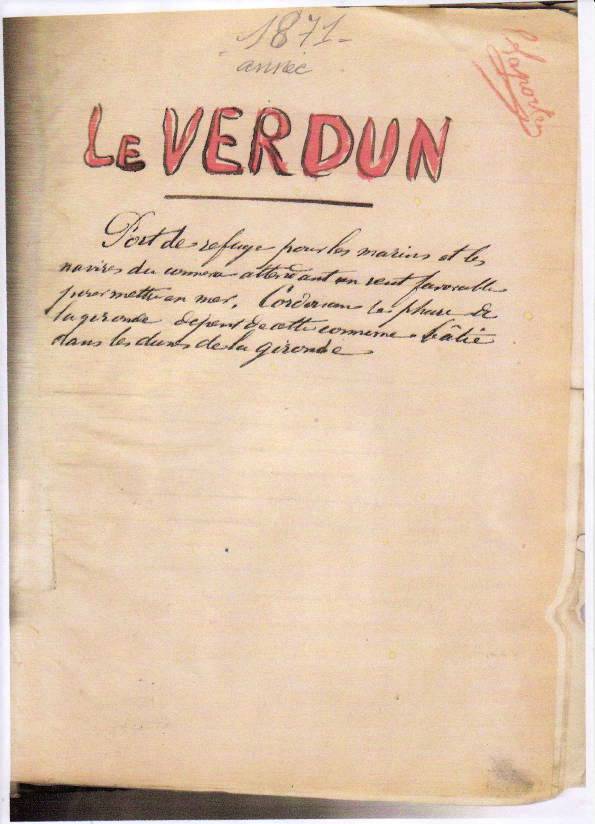 1871
année
Laporte
LE VERDUN
Port de refuge pour les marins et les
navires du commerce attendant un vent favorable
pour mettre en mer. Cordouan le phare de
la gironde depend de cette commune bâtie
dans les dunes de la gironde